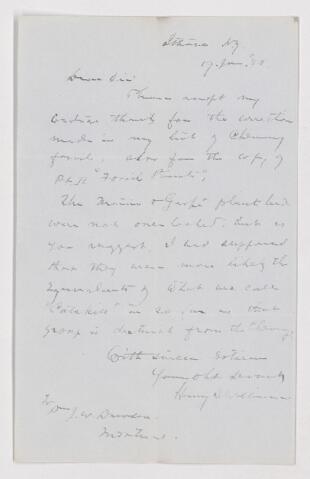 Ithaca NY
17 Jan. '88
Dear Sir
Please accept my
cordial thanks for the correction
made in my list of Chemung
fossils, also for the copy of
Pt II "Fossil Plants",
The Maine & Gaspé plant beds
were not overlooked. but as
you suggest, I had supposed
that they were more likely the
equivalents of what we call
"Catskill" in so far as that
Group is distinct from the Chemung.
With sincere esteem
Your Obt Servant
Henry S. Williams
To
J. W. Dawson
Montreal.